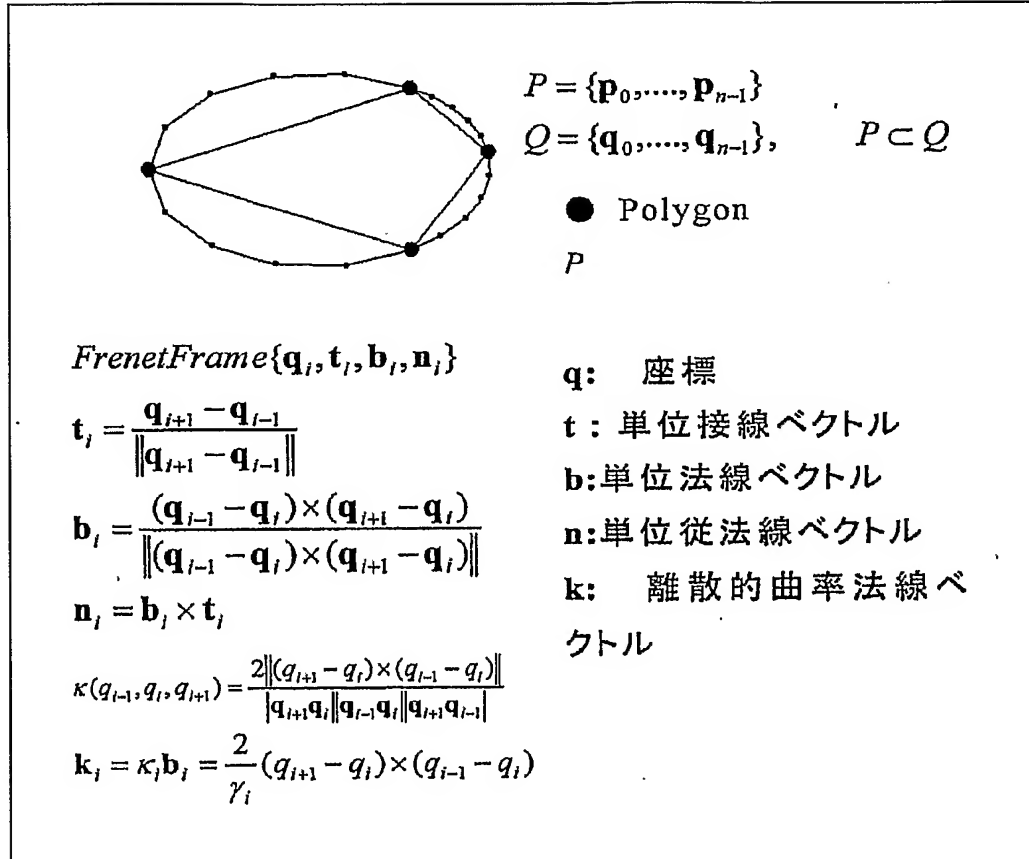 P = {p₀,....,pₙ₋₁}
Q = {q₀,....,qₙ₋₁}, P ⊂ Q
● Polygon
P
FrenetFrame{qᵢ, tᵢ, bᵢ, nᵢ}
tᵢ = (qᵢ₊₁ − qᵢ₋₁) / ‖qᵢ₊₁ − qᵢ₋₁‖
bᵢ = (qᵢ₋₁ − qᵢ)×(qᵢ₊₁ − qᵢ) / ‖(qᵢ₋₁ − qᵢ)×(qᵢ₊₁ − qᵢ)‖
nᵢ = bᵢ × tᵢ
κ(qᵢ₋₁, qᵢ, qᵢ₊₁) = 2‖(qᵢ₊₁ − qᵢ)×(qᵢ₋₁ − qᵢ)‖ / |qᵢ₊₁qᵢ||qᵢ₋₁qᵢ||qᵢ₊₁qᵢ₋₁|
kᵢ = κᵢbᵢ = 2/γᵢ (qᵢ₊₁ − qᵢ)×(qᵢ₋₁ − qᵢ)
q: 座標
t : 単位接線ベクトル
b:単位法線ベクトル
n:単位従法線ベクトル
k: 離散的曲率法線ベ
クトル